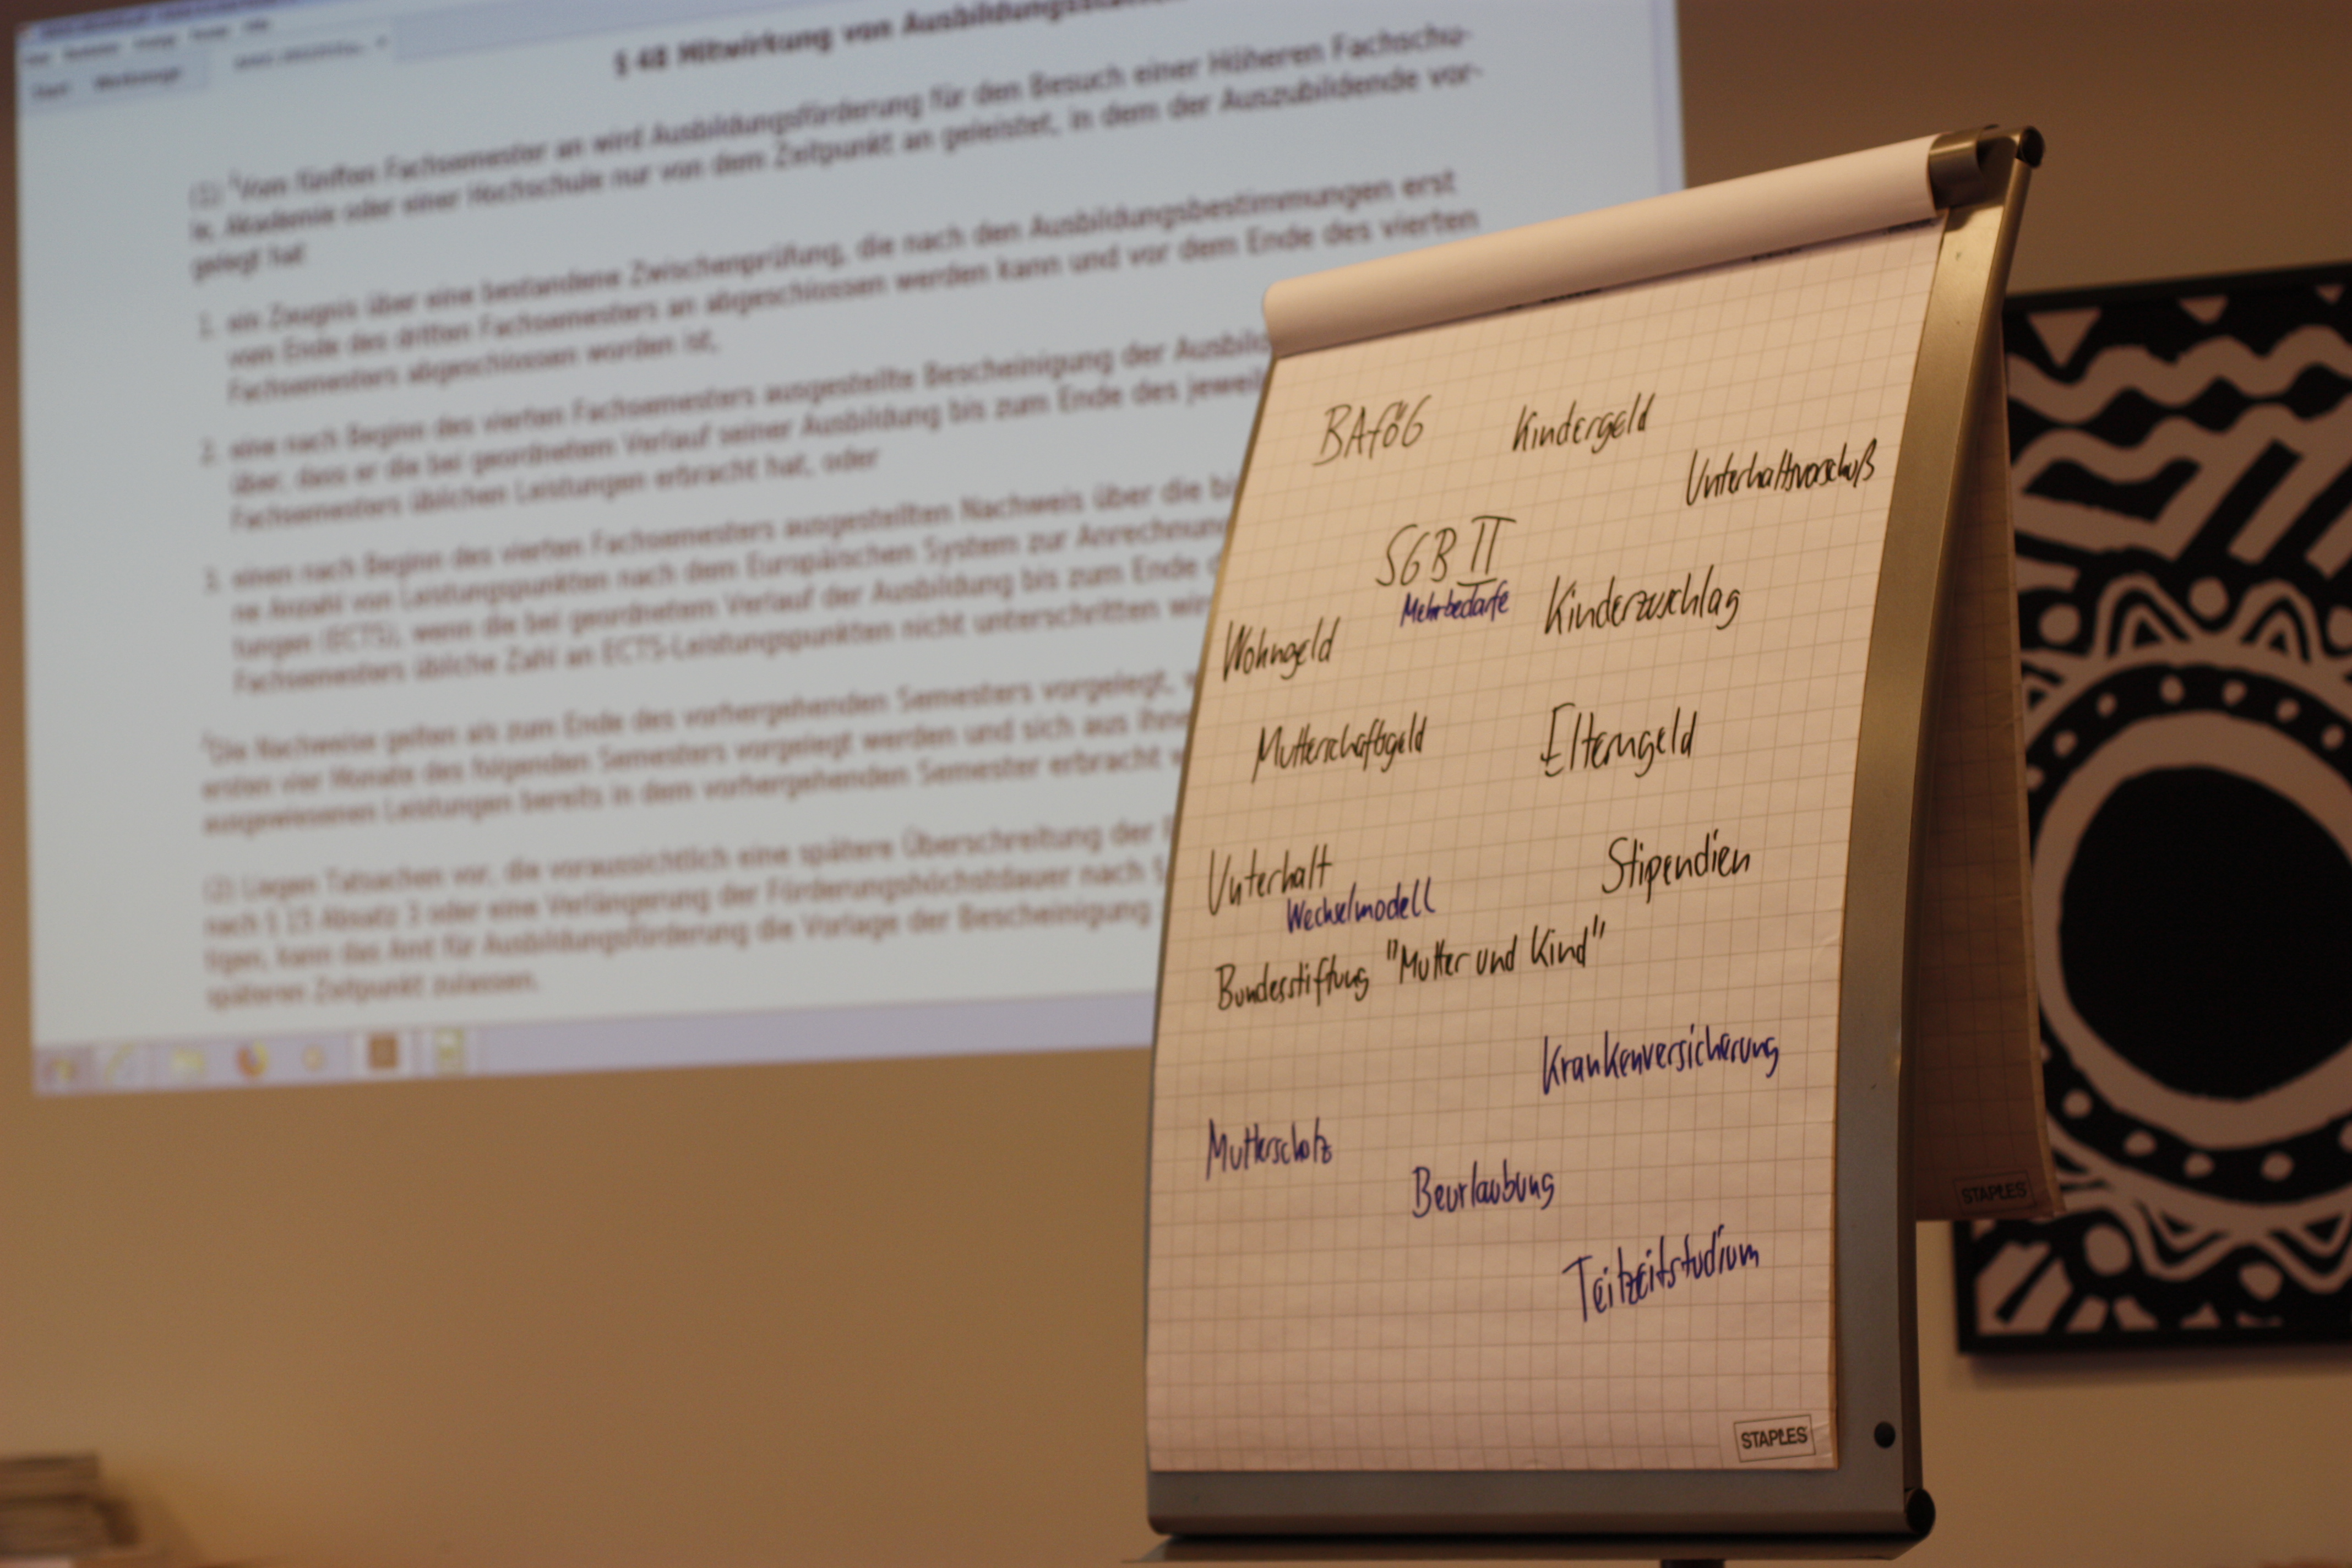 § 48 Mitwirkung von
(1) ¹Vom fünften Fachsemester an wird Ausbildungsförderung für den Besuch einer Höheren Fachschu-
le, Akademie oder einer Hochschule nur von dem Zeitpunkt an geleistet, in dem der Auszubildende vor-
gelegt hat
1. ein Zeugnis über eine bestandene Zwischenprüfung, die nach den Ausbildungsbestimmungen erst
vom Ende des dritten Fachsemesters an abgeschlossen werden kann und vor dem Ende des vierten
Fachsemesters abgeschlossen worden ist,
2. eine nach Beginn des vierten Fachsemesters ausgestellte Bescheinigung der
über, dass er die bei geordnetem Verlauf seiner Ausbildung bis zum Ende des
Fachsemesters üblichen Leistungen erbracht hat, oder
3. einen nach Beginn des vierten Fachsemesters ausgestellten Nachweis über die
ne Anzahl von Leistungspunkten nach dem Europäischen System zur
tungen (ECTS), wenn die bei geordnetem Verlauf der Ausbildung bis zum Ende
Fachsemesters übliche Zahl an ECTS-Leistungspunkten nicht unterschritten
²Die Nachweise gelten als zum Ende des vorhergehenden Semesters vorgelegt,
ersten vier Monate des folgenden Semesters vorgelegt werden und sich aus
ausgewiesenen Leistungen bereits in dem vorhergehenden Semester erbracht
(2) Liegen Tatsachen vor, die voraussichtlich eine spätere Überschreitung der
nach § 15 Absatz 3 oder eine Verlängerung der Förderungshöchstdauer nach
tigen, kann das Amt für Ausbildungsförderung die Vorlage der Bescheinigung
späteren Zeitpunkt zulassen.
BAföG Kindergeld
Unterhaltsvorschuß
SGB II
Mehrbedarfe
Kinderzuschlag
Wohngeld
Mutterschaftsgeld Elterngeld
Unterhalt Stipendien
Wechselmodell
Bundesstiftung "Mutter und Kind"
Krankenversicherung
Mutterschutz
Beurlaubung
Teilzeitstudium
STAPLES
STAPLES